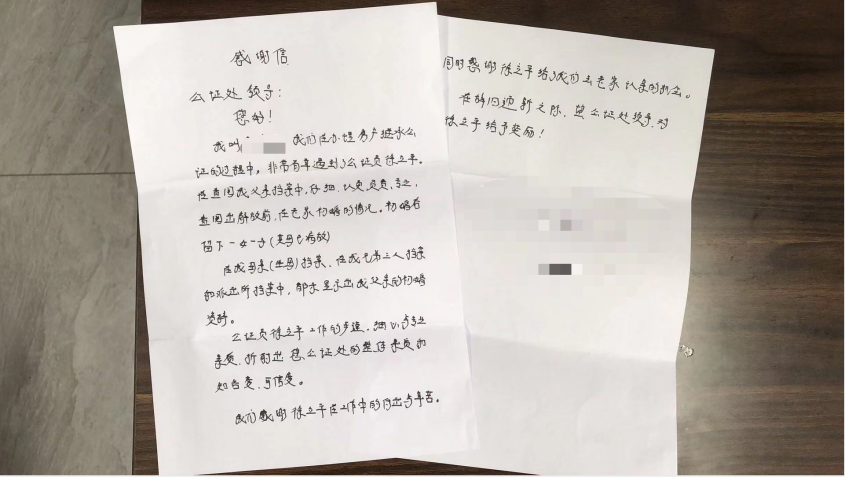 感谢信
公证处领导:
您好!
我叫 我们在办理房产继承公
证的过程中,非常有幸遇到了公证员徐立平。
在查阅我父亲档案中,仔细、认真、负责、专业,
查阅出解放前,在老家初婚的情况。初婚有
留下一女一子(其母已病故)
在我母亲(生母)档案,在我兄弟三人档案
和派出所档案中,都未显示出我父亲的初婚
资料。
公证员徐立平工作的 ,细心与专业
素质,折射出您公证处的整体素质和
知名度、可信度。
我们感谢徐立平在工作中的付出与辛苦。
同时感谢徐立平给了我们去老家认亲的机会。
在辞旧迎新之际,望公证处领导,对
徐立平给予奖励!